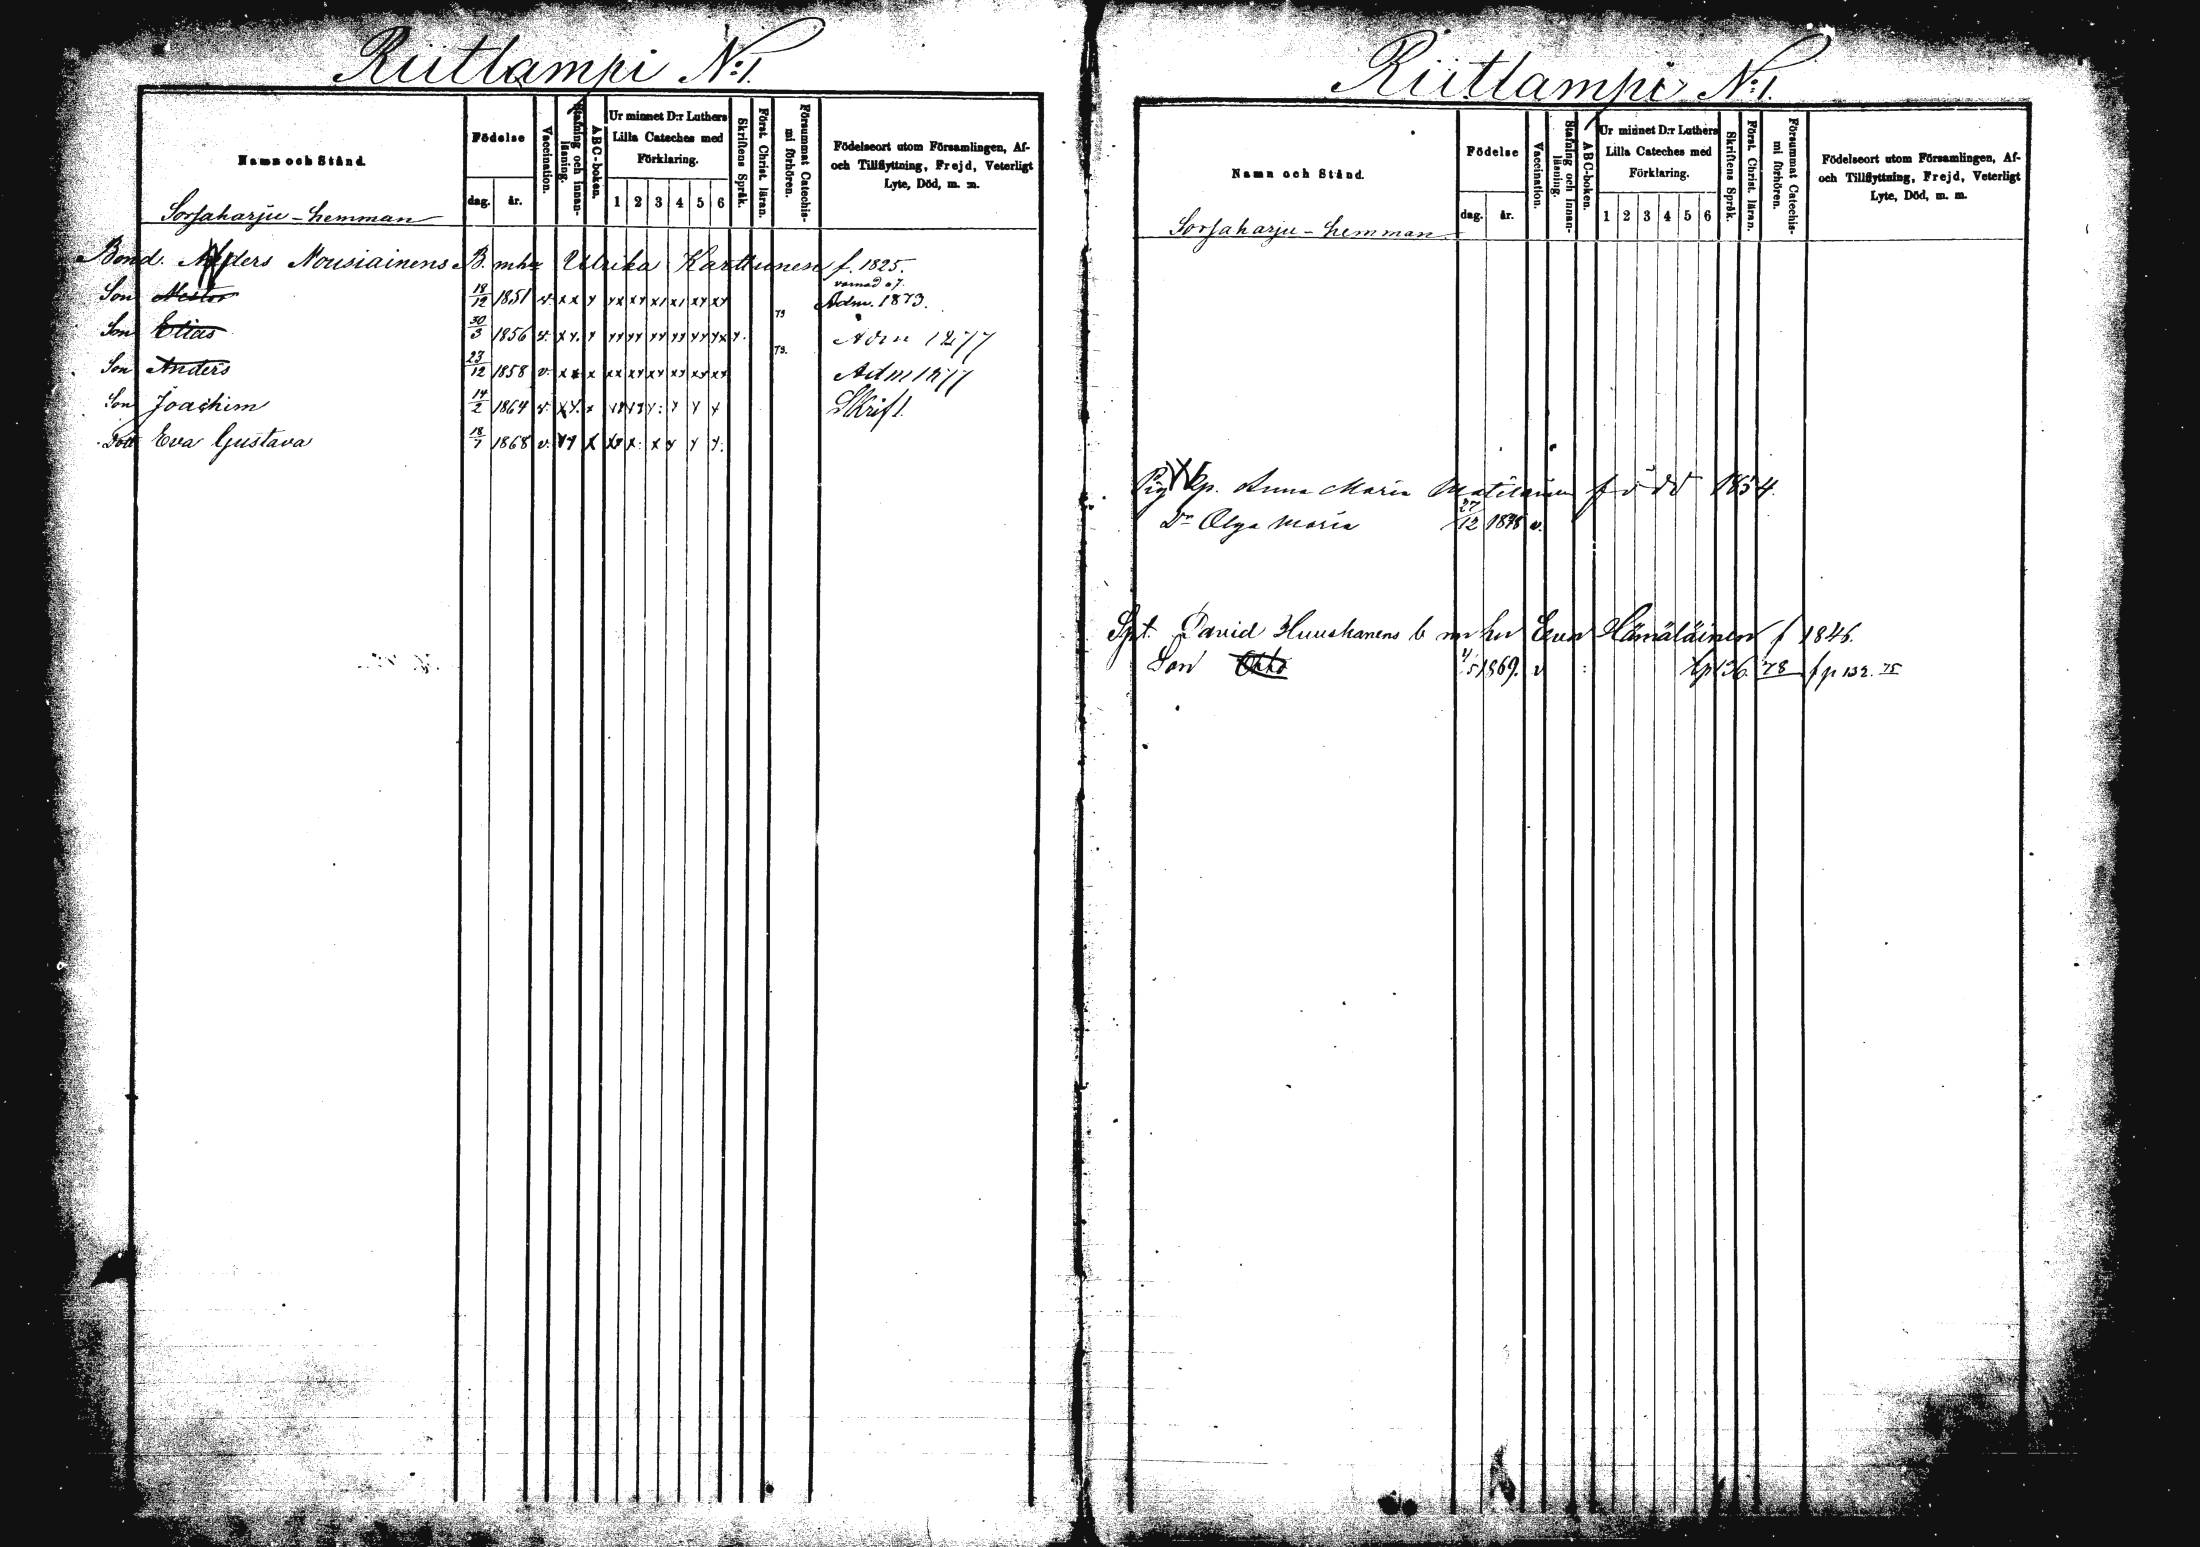 Riitlampi N:1.
Namn och Stånd.
Födelse
dag.
år.
Vaccination.
Stafning och innanläsning.
ABC-boken.
Ur minnet D:r Luthers
Lilla Cateches med
Förklaring.
1 2 3 4 5 6
Skriftens Språk.
Först. Christ. läran.
Försummat Catechismi förhören.
Födelseort utom Församlingen, Af-
och Tillflyttning, Frejd, Veterligt
Lyte, Död, m. m.
Sorsaharju - hemman
Bond. Anders Nousiainens B. m h Ulrika Karttunen f. 1825.
Son Nestor 18/12 1851 v. xx y yx xy x1 x1 xy xy Adm. 1873.
Son Elias 30/3 1856 v. xy. y yy yy yy yy yy yx y. 79 Adm 1877
Son Anders 23/12 1858 v. xx x xx xy xy xy xy xy 79. Adm 1877
Son Joachim 14/2 1864 v. xy. x yy yy y: y y y Skrift.
Dott Eva Gustava 18/7 1868 v. yy x xy x. x y y y.
Riitlampi N:1.
Namn och Stånd.
Födelse
dag.
år.
Vaccination.
Stafning och innanläsning.
ABC-boken.
Ur minnet D:r Luthers
Lilla Cateches med
Förklaring.
1 2 3 4 5 6
Skriftens Språk.
Först. Christ. läran.
Försummat Catechismi förhören.
Födelseort utom Församlingen, Af-
och Tillflyttning, Frejd, Veterligt
Lyte, Död, m. m.
Sorsaharju - hemman
Pig Anna Maria Matilainen född 1854.
Dr Olga Maria 27/12 1878 v.
Spt. David Huuskonens b m hu Eva Hämäläinen f 1846.
Son Otto 4/5 1869. v tp 136. 78 fp 132. 75